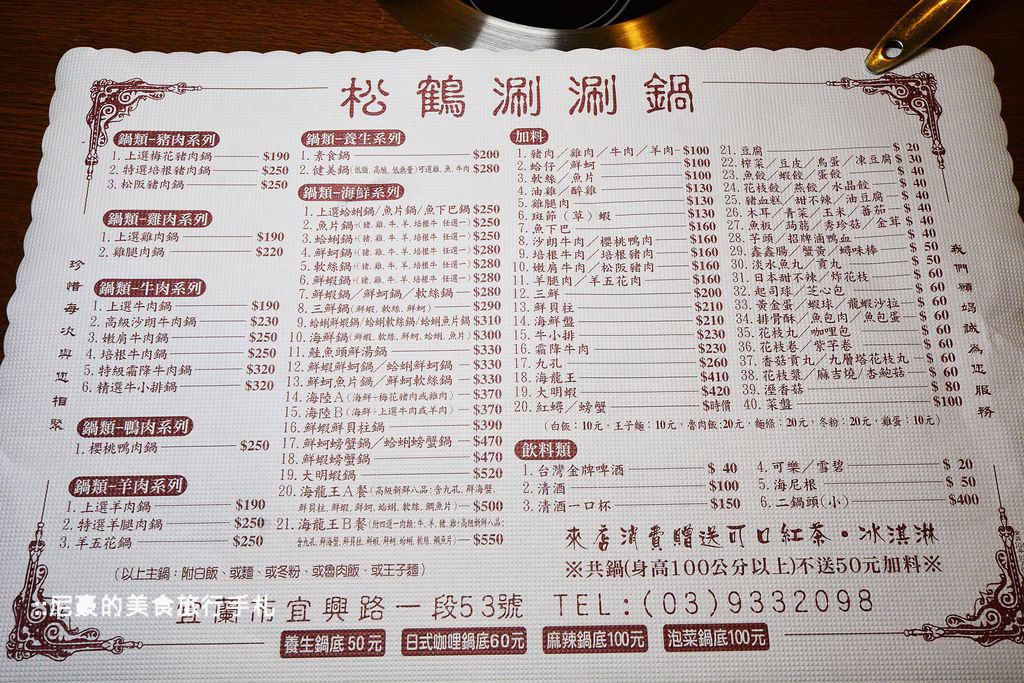 松鶴涮涮鍋
鍋類-豬肉系列
1.上選梅花豬肉鍋 $190
2.特選培根豬肉鍋 $250
3.松阪豬肉鍋 $250
鍋類-雞肉系列
1.上選雞肉鍋 $190
2.雞腿肉鍋 $220
鍋類-牛肉系列
1.上選牛肉鍋 $190
2.高級沙朗牛肉鍋 $230
3.嫩肩牛肉鍋 $250
4.培根牛肉鍋 $250
5.特級霜降牛肉鍋 $320
6.精選牛小排鍋 $320
鍋類-鴨肉系列
1.櫻桃鴨肉鍋 $250
鍋類-羊肉系列
1.上選羊肉鍋 $190
2.特選羊腿肉鍋 $250
3.羊五花鍋 $250
(以上主鍋:附白飯、或麵、或冬粉、或魯肉飯、或王子麵)
鍋類-養生系列
1.素食鍋 $200
2.健美鍋(低脂.高酸.低熱量)可選雞.魚.牛肉 $280
鍋類-海鮮系列
1.上選蛤蜊鍋/魚片鍋/魚下巴鍋 $250
2.魚片鍋+(豬.雞.牛.羊.培根牛 任選一) $250
3.蛤蜊鍋+(豬.雞.牛.羊.培根牛 任選一) $250
4.鮮蚵鍋+(豬.雞.牛.羊.培根牛 任選一) $280
5.軟絲鍋+(豬.雞.牛.羊.培根牛 任選一) $280
6.鮮蝦鍋+(豬.雞.牛.羊.培根牛 任選一) $280
7.鮮蝦鍋/鮮蚵鍋/軟絲鍋 $280
8.三鮮鍋(鮮蝦.軟絲.鮮蚵) $290
9.蛤蜊鮮蝦鍋/蛤蜊軟絲鍋/蛤蜊魚片鍋 $310
10.海鮮鍋(鮮蝦.軟絲.鮮蚵.蛤蜊.魚片) $300
11.鮭魚頭鮮湯鍋 $330
12.鮮蚵鮮蝦鍋/蛤蜊鮮蚵鍋 $330
13.鮮蚵魚片鍋/鮮蚵軟絲鍋 $330
14.海陸A(海鮮+梅花豬肉或雞肉) $370
15.海陸B(海鮮+上選牛肉或羊肉) $370
16.鮮蝦鮮貝柱鍋 $390
17.鮮蚵螃蟹鍋/蛤蜊螃蟹鍋 $470
18.鮮蝦螃蟹鍋 $470
19.大明蝦鍋 $520
20.海龍王A餐(高級新鮮八品:含九孔.鮮海盤.
鮮貝柱.鮮蝦.鮮蚵.蛤蜊.軟絲.鯛魚片) $500
21.海龍王B餐(附四選一肉類:牛.羊.豬.雞+高級新鮮八品:
含九孔.鮮海盤.鮮貝柱.鮮蝦.鮮蚵.蛤蜊.軟絲.鯛魚片) $550
加料
1.豬肉/雞肉/牛肉/羊肉 $100
2.蛤仔/鮮蚵 $100
3.軟絲/魚片 $100
4.油雞/醉雞 $130
5.雞腿肉 $130
6.斑節(草)蝦 $130
7.魚下巴 $160
8.沙朗牛肉/櫻桃鴨肉 $160
9.培根牛肉/培根豬肉 $160
10.嫩肩牛肉/松阪豬肉 $160
11.羊腿肉/羊五花肉 $160
12.三鮮 $200
13.鮮貝柱 $210
14.海鮮盤 $210
15.牛小排 $230
16.霜降牛肉 $230
17.九孔 $260
18.海龍王 $410
19.大明蝦 $420
20.紅蟳/螃蟹 $時價
21.豆腐 $20
22.榨菜/豆皮/鳥蛋/凍豆腐 $30
23.魚餃/蝦餃/蛋餃 $30
24.花枝餃/燕餃/水晶餃 $40
25.豬血糕/甜不辣/油豆腐 $40
26.木耳/青菜/玉米/蕃茄 $40
27.魚板/蒟蒻/秀珍菇/金茸 $40
28.芋頭/招牌滷鴨血 $40
29.鑫鑫腸/蟹黃/蟳味棒 $50
30.淡水魚丸/貢丸 $50
31.日本甜不辣/炸花枝 $60
32.起司球/芝心包 $60
33.黃金蛋/蝦球/龍蝦沙拉 $60
34.排骨酥/魚包肉/魚包蛋 $60
35.花枝丸/咖哩包 $60
36.花枝卷/紫芋卷 $60
37.香菇貢丸/九層塔花枝丸 $60
38.花枝漿/麻吉燒/杏鮑菇 $60
39.溼香菇 $80
40.菜盤 $100
(白飯:10元,王子麵:10元,魯肉飯:20元,麵條:20元,冬粉:20元,雞蛋:10元)
飲料類
1.台灣金牌啤酒 $40
2.清酒 $100
3.清酒一口杯 $150
4.可樂/雪碧 $20
5.海尼根 $50
6.二鍋頭(小) $400
來店消費贈送可口紅茶•冰淇淋
※共鍋(身高100公分以上)不送50元加料※
珍惜每次與您相聚
我們願竭誠為您服務
宜蘭市宜興路一段53號 TEL:(03)9332098
養生鍋底50元 日式咖哩鍋底60元 麻辣鍋底100元 泡菜鍋底100元
尼豪的美食旅行手札